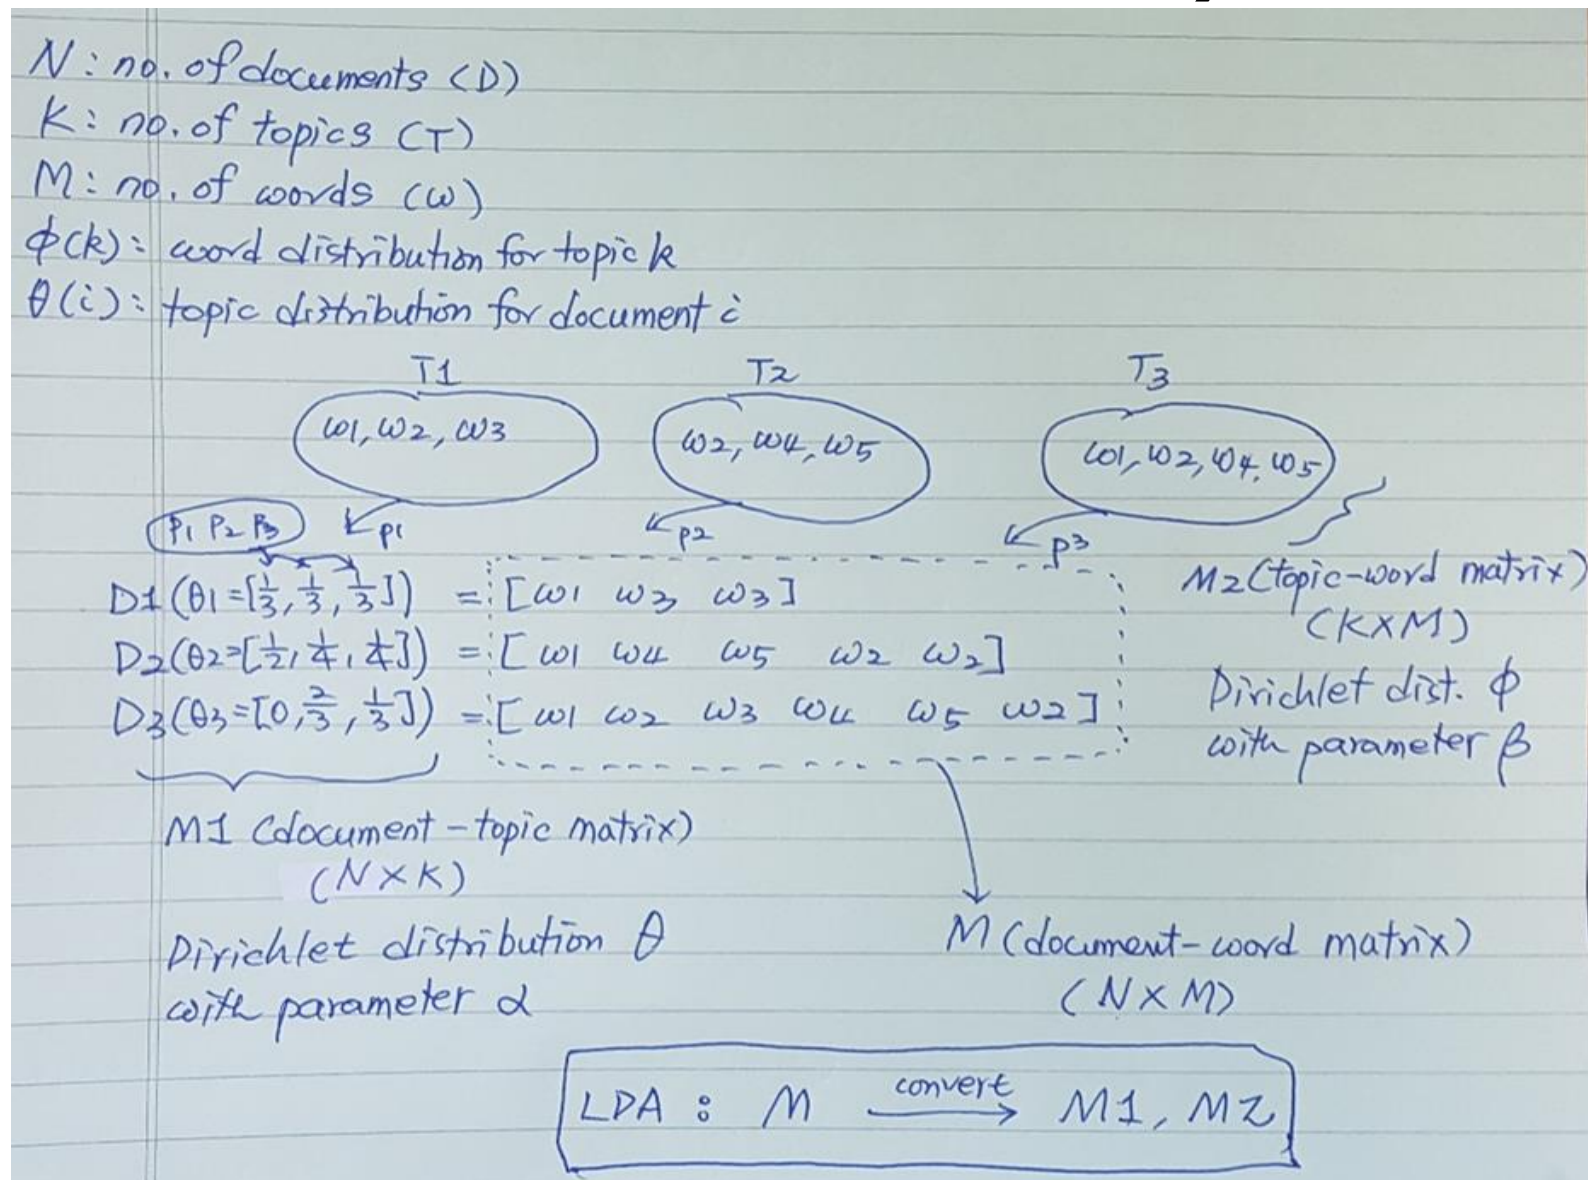 N: no. of documents (D)
K: no. of topics (T)
M: no. of words (ω)
φ(k): word distribution for topic k
θ(i): topic distribution for document i
T1 T2 T3
ω1, ω2, ω3
ω2, ω4, ω5
ω1, ω2, ω4, ω5
P1 P2 P3
p1
p2
p3
D1(θ1=[1/3, 1/3, 1/3]) = [ω1 ω3 ω3]
D2(θ2=[1/2, 1/4, 1/4]) = [ω1 ω4 ω5 ω2 ω2]
D3(θ3=[0, 2/3, 1/3]) = [ω1 ω2 ω3 ω4 ω5 ω2]
M2 (topic-word matrix)
(K×M)
Dirichlet dist. φ
with parameter β
M1 (document-topic matrix)
(N×K)
Dirichlet distribution θ
with parameter α
M (document-word matrix)
(N×M)
convert
LDA : M → M1, M2